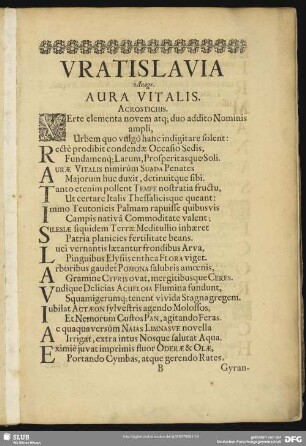 VRATISLAVIA
Anagr.
AURA VITALIS.
ACROSTICHIS.
VErte elementa novem atq; duo addito Nominis
ampli,
Urbem quo vulgò hanc indigitare solent:
Rectè prodibit condendæ Occasio Sedis,
Fundamenq; Larum, Prosperitasque Soli.
AURÆ VITALIS nimirùm SUADA Penates
Majorum huc duxit, detinuitque sibi.
Tanto etenim pollent TEMPE nostratia fructu,
Ut certare Italis Thessalicisque queant:
Immo Teutonicis Palmam rapuisse quibusvis
Campis nativâ Commoditate valent;
SILESIÆ siquidem Terræ Meditullio inhæret
Patria planicies fertilitate beans.
Luci vernantis lætantur frontibus Arva,
Pinguibus Elysiis enthea FLORA viget.
Arboribus gaudet POMONA salubris amœnis,
Gramine CYPRIS ovat, mergitibusque CERES.
Vndique Delicias ACHELOIA Flumina fundunt,
Squamigerumq; tenent vivida Stagna gregem.
Iubilat ACTÆON sylvestris agendo Molossos,
Et Nemorum Custos PAN, agitando Feras.
quaquaversùm NAIAS LIMNASVE novella
Irrigat, extra intus Nosque salutat Aqua.
Eximiè juvat imprimis fluor ODERÆ & OLÆ,
Portando Cymbas, atque gerendo Rates.
B
Gyran-
SLUB
Wir führen Wissen.
gefördert von der
Deutschen Forschungsgemeinschaft